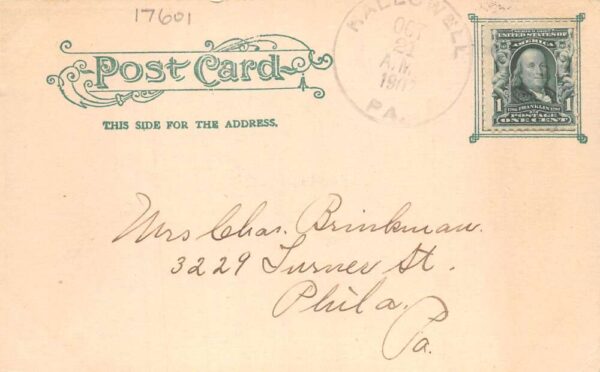 17601
Post Card
THIS SIDE FOR THE ADDRESS.
HALLOWELL
OCT
A.M.
PA.
UNITED STATES OF AMERICA
1 FRANKLIN 1
POSTAGE
ONE CENT
Mrs Chas. Brinkman
3229 Turner St.
Phila.
Pa.